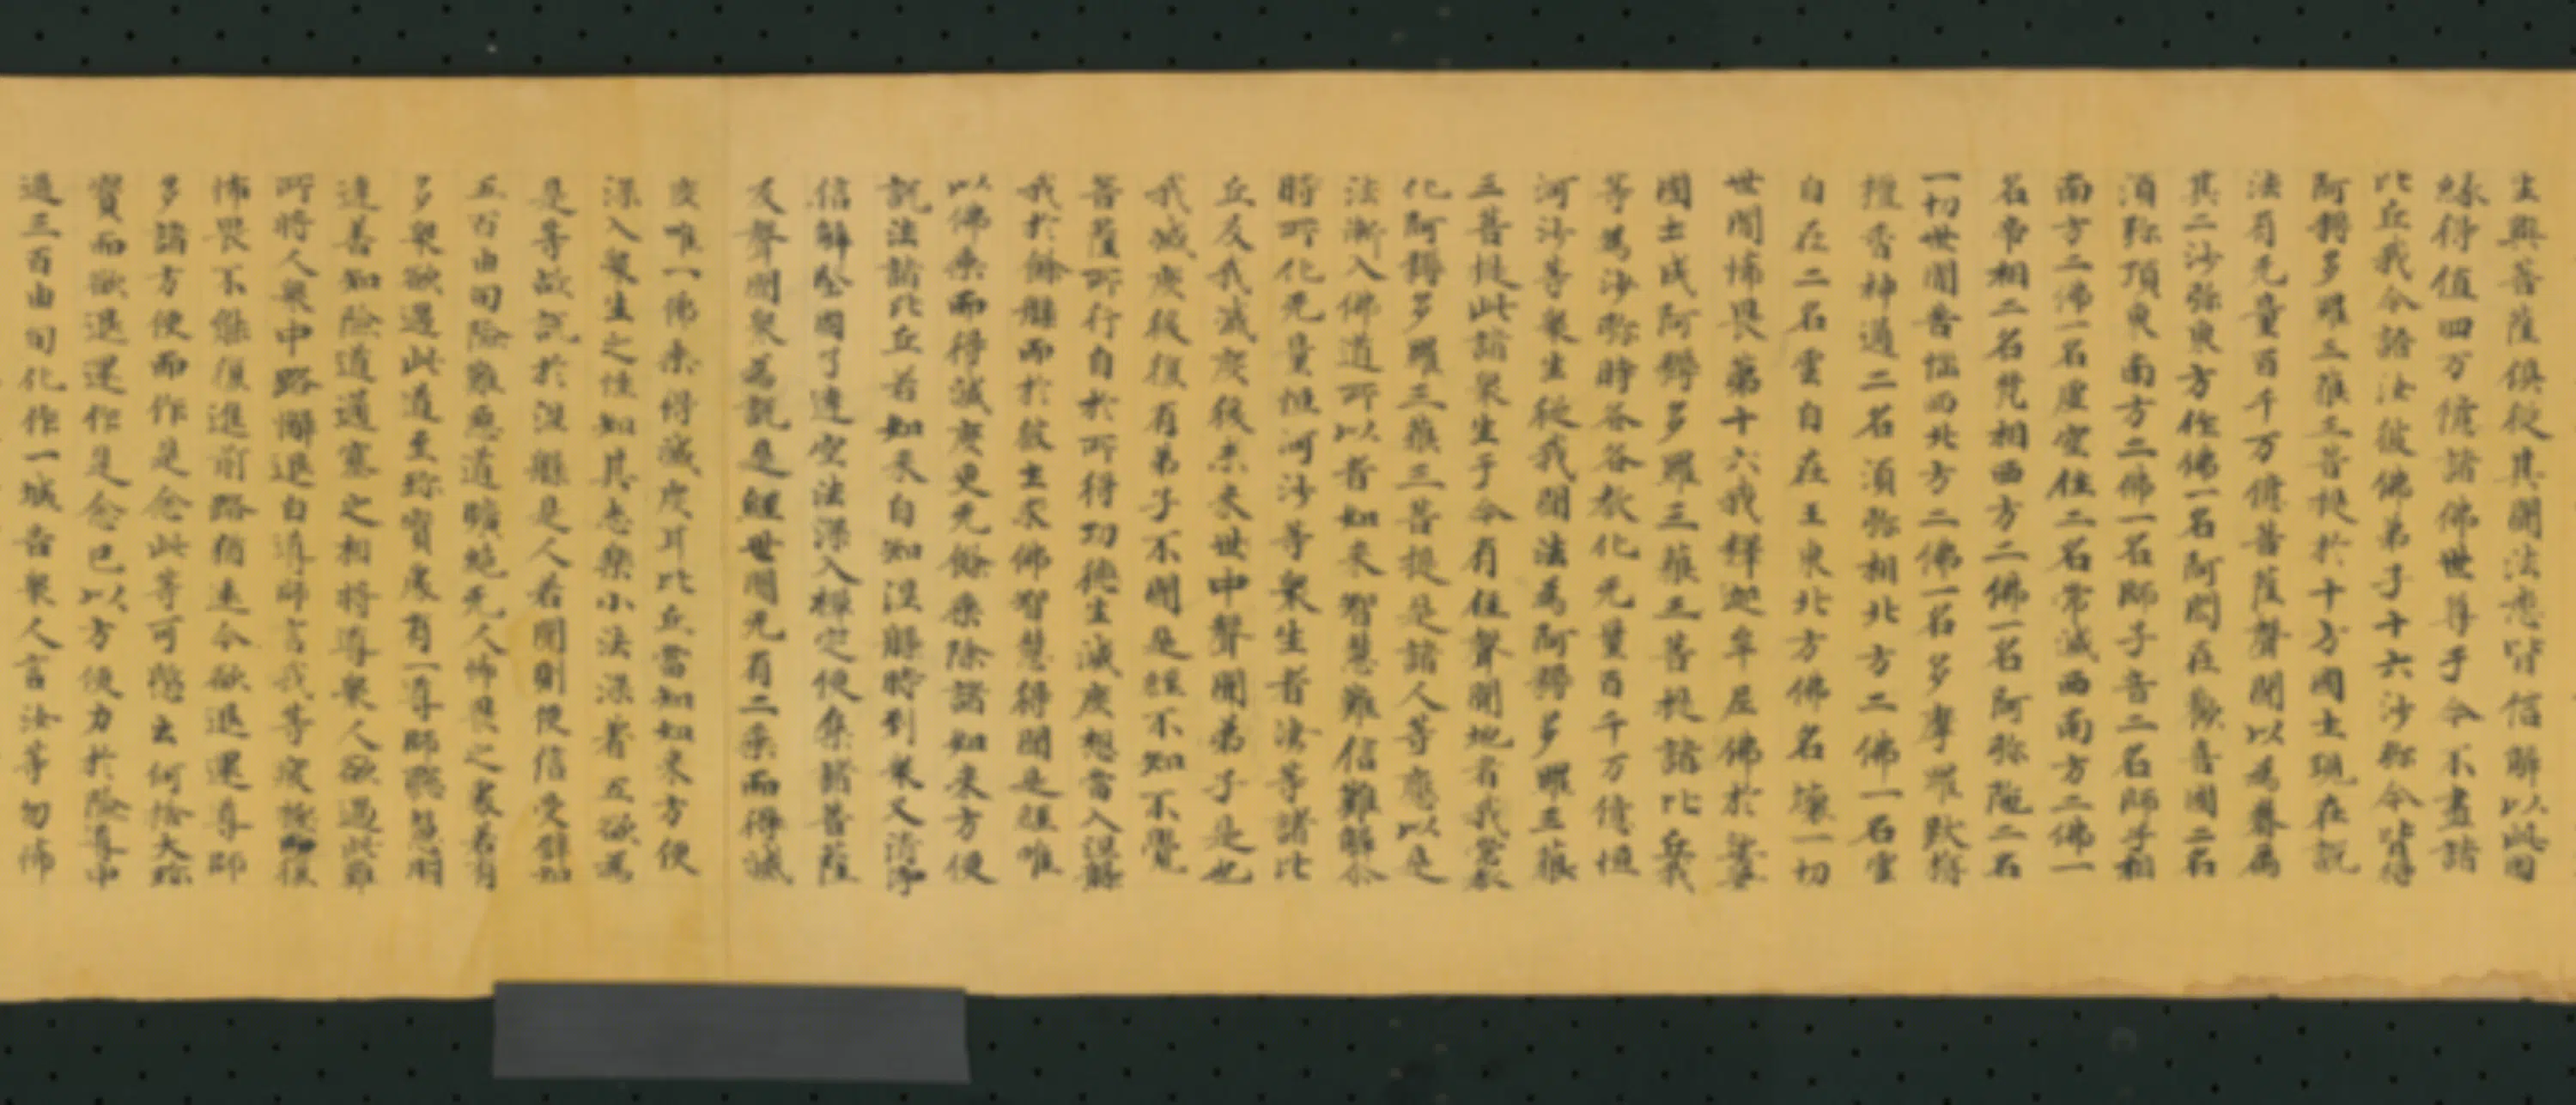 生與菩薩俱從其聞法悉皆信解以此因
緣得值四万億諸佛世尊于今不盡諸
比丘我今語汝彼佛弟子十六沙弥今皆得
阿耨多羅三藐三菩提於十方國土現在說
法有无量百千万億菩薩聲聞以為眷屬
其二沙弥東方作佛一名阿閦在歡喜國二名
須弥頂東南方二佛一名師子音二名師子相
南方二佛一名虛空住二名常滅西南方二佛一
名帝相二名梵相西方二佛一名阿弥陁二名
一切世間苦惱西北方二佛一名多摩羅跋栴
檀香神通二名須弥相北方二佛一名雲
自在二名雲自在王東北方佛名壞一切
世間怖畏第十六我釋迦牟尼佛於娑婆
國土成阿耨多羅三藐三菩提諸比丘我
等為沙弥時各各教化无量百千万億恒
河沙等衆生從我聞法為阿耨多羅三藐
三菩提此諸衆生于今有住聲聞地者我常教
化阿耨多羅三藐三菩提是諸人等應以是
法漸入佛道所以者如來智慧難信難解尒
時所化无量恒河沙等衆生者汝等諸比
丘及我滅度後未來世中聲聞弟子是也
我滅度後復有弟子不聞是經不知不覺
菩薩所行自於所得功德生滅度想當入涅槃
我於餘國而於彼土求佛智慧得聞是經唯
以佛乘而得滅度更无餘乘除諸如來方便
說法諸比丘若如來自知涅槃時到衆又清淨
信解堅固了達空法深入禪定便集諸菩薩
及聲聞衆為說是經世間无有二乘而得滅
度唯一佛乘得滅度耳比丘當知如來方便
深入衆生之性知其志樂小法深著五欲為
是等故說於涅槃是人若聞則便信受譬如
五百由旬險難惡道曠絕无人怖畏之處若有
多衆欲過此道至珍寶處有一導師聰慧明
達善知險道通塞之相將導衆人欲過此難
所將人衆中路懈退白導師言我等疲極而復
怖畏不能復進前路猶遠今欲退還導師
多諸方便而作是念此等可愍云何捨大珍
寶而欲退還作是念已以方便力於險道中
過三百由旬化作一城告衆人言汝等勿怖